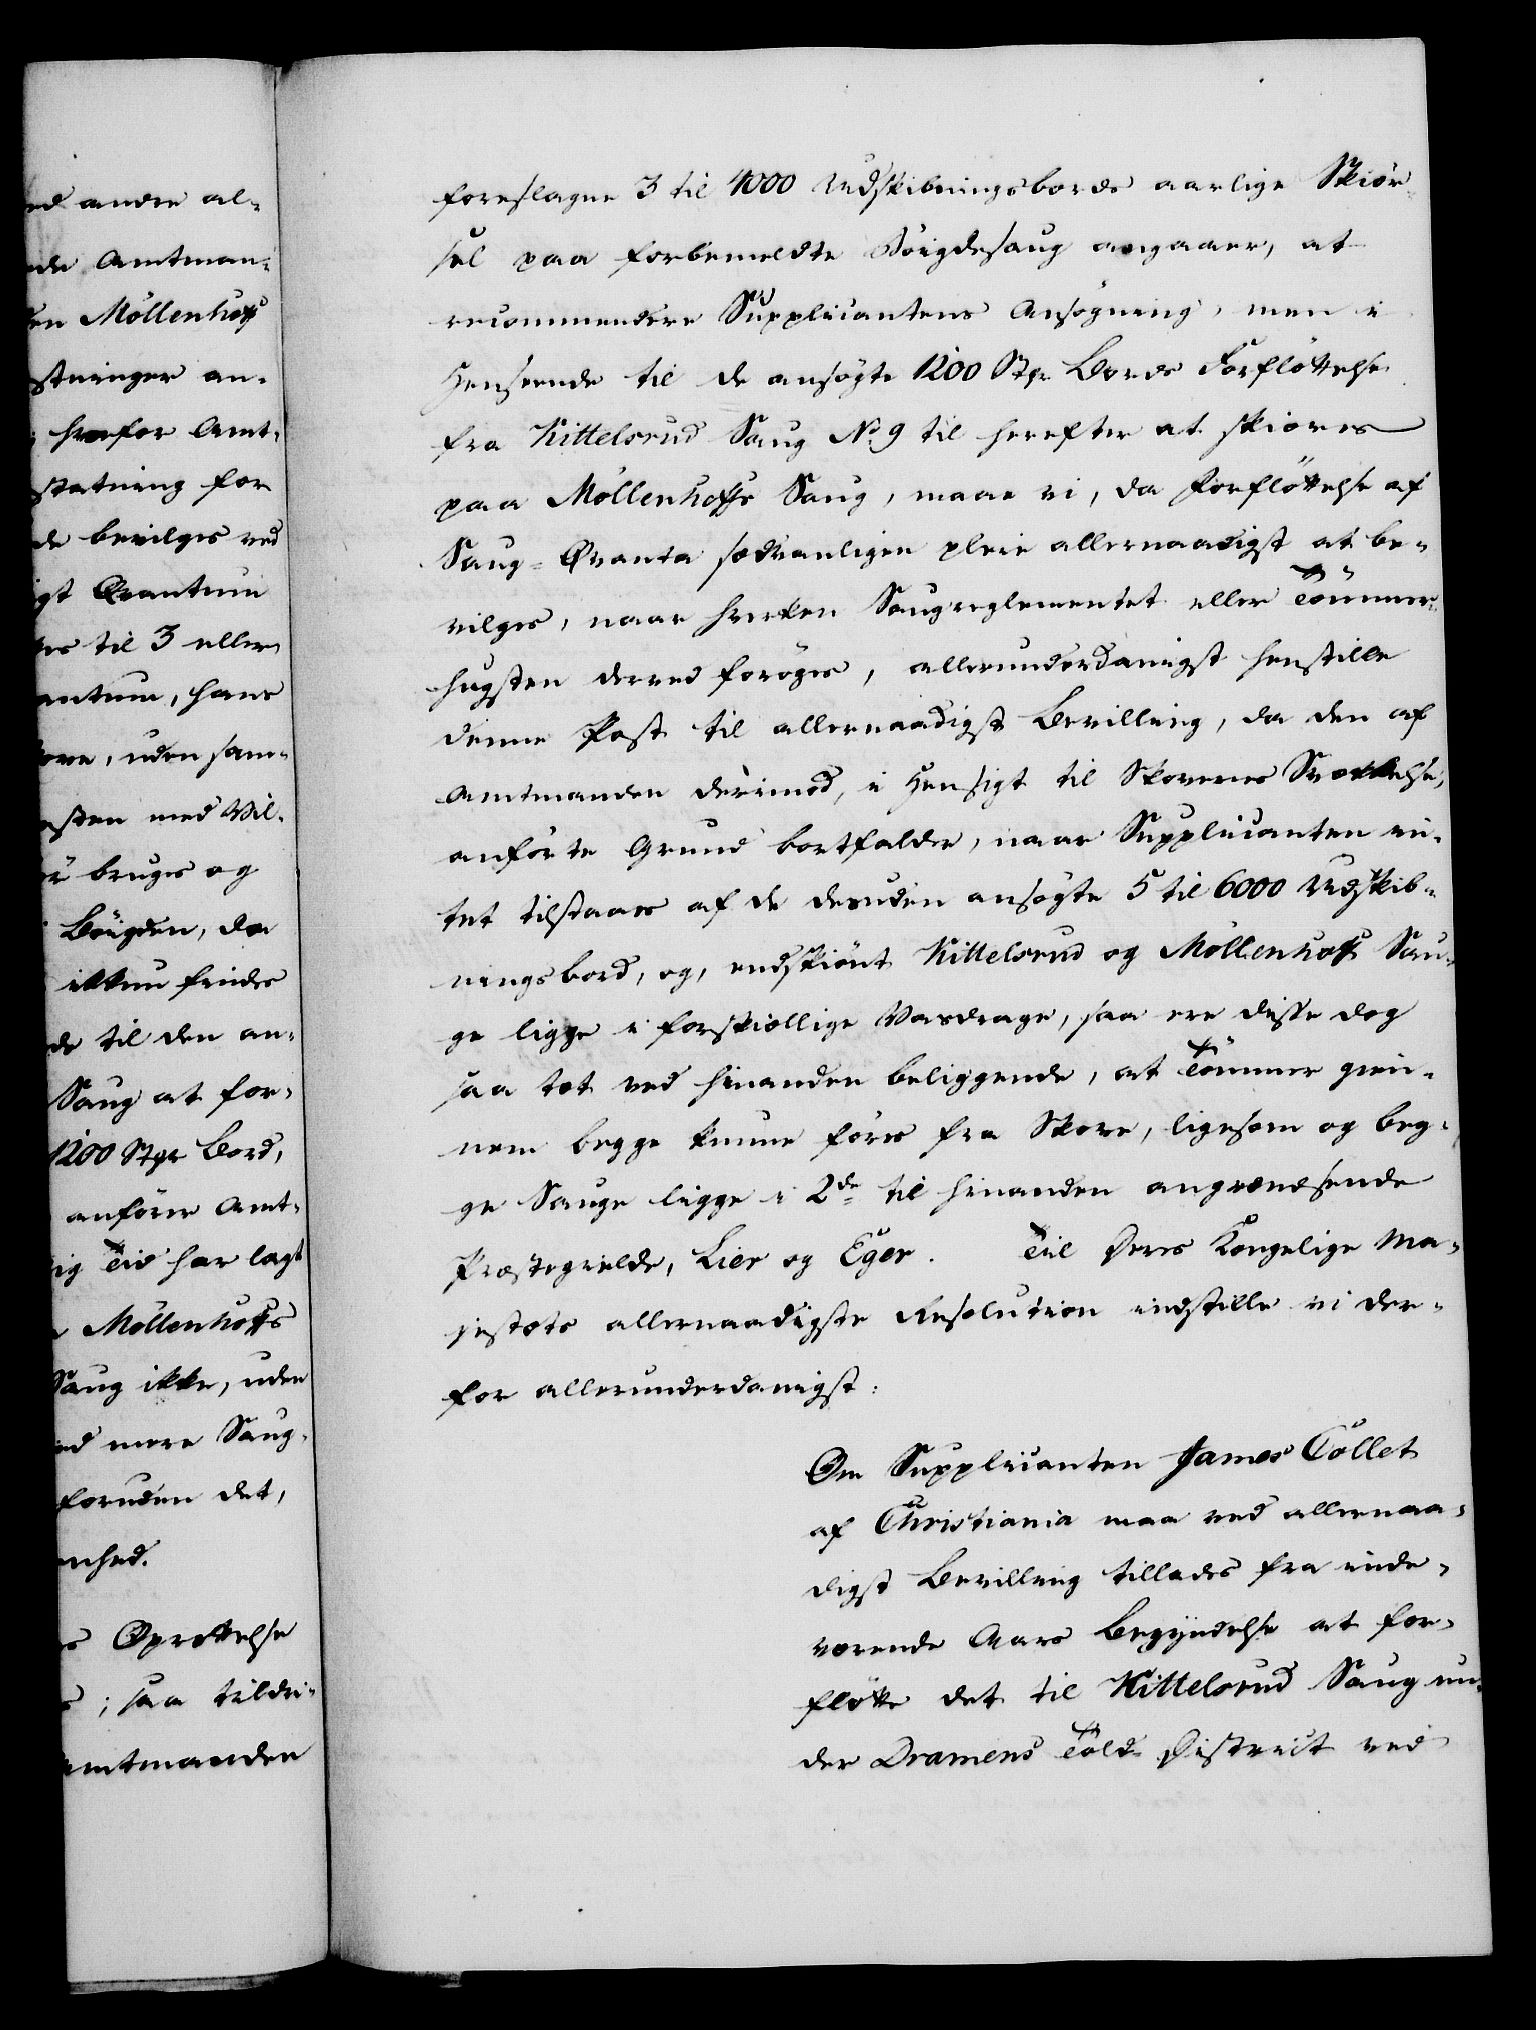 ed andre al-
nde Amtman-
en Möllenhoff
stninger an-
hvorfor Amt-
statning for
de bevilges ved
igt Qvantum
tes til 3 eller
antum, hans
ove, uden saa-
esten med Vil-
ör bruges og
Böigden, da
ikkun findes
de til den an-
Saug at for-
1200 Stpr Bord,
anförer Amt-
ig Tid har lagt
Möllenhoffs
Saug ikke, uden
ed mere Saug-
foruden det,
enhed.
s Oprettelse
s; saa tildri-
Amtmanden
foreslagne 3 til 4000 Udskibningsbords aarlige Skiör-
sel paa forbemeldte Böigdesaug angaaer, at
recommendere Supplicantens Ansögning, men i
Henseende til de ansögte 1200 Stpr Bords Forflöttelse
fra Kittelsrud Saug No 9 til herefter at skiæres
paa Möllenhoffs Saug, maae vi, da Forflöttelse af
Saug-Qvanta sædvanligen pleie allernaadigst at be-
vilges, naar hverken Saugreglementet eller Tömmer-
hugsten derved forøges, allerunderdanigst henstille
denne Post til allernaadigst Bevilling, da den af
Amtmanden derimod, i Hensigt til Skovenes Svækkelse,
anförte Grund bortfalder, naar Supplicanten in-
tet tilstaaes af de desuden ansögte 5 til 6000 Udskib-
ningsbord, og, endskiönt Kittelsrud og Möllenhoff Sau-
ge ligge i forskiællige Vasdrage, saa ere disse dog
saa tæt ved hinanden beliggende, at Tömmer gien-
nem begge kunne föres fra Skove, ligesom og beg-
ge Sauge ligge i 2de til hinanden angrændsende
Præstegielde, Lier og Eger. Til Deres Kongelige Ma-
jestæts allernaadigste Resolution indstille vi der-
for allerunderdanigst:
Om Supplicanten James Collet
af Christiania maa ved allernaa-
digst Bevilling tillades fra inde-
værende Aars Begyndelse at for-
flötte det til Kittelsrud Saug un-
der Dramens Told-District ved